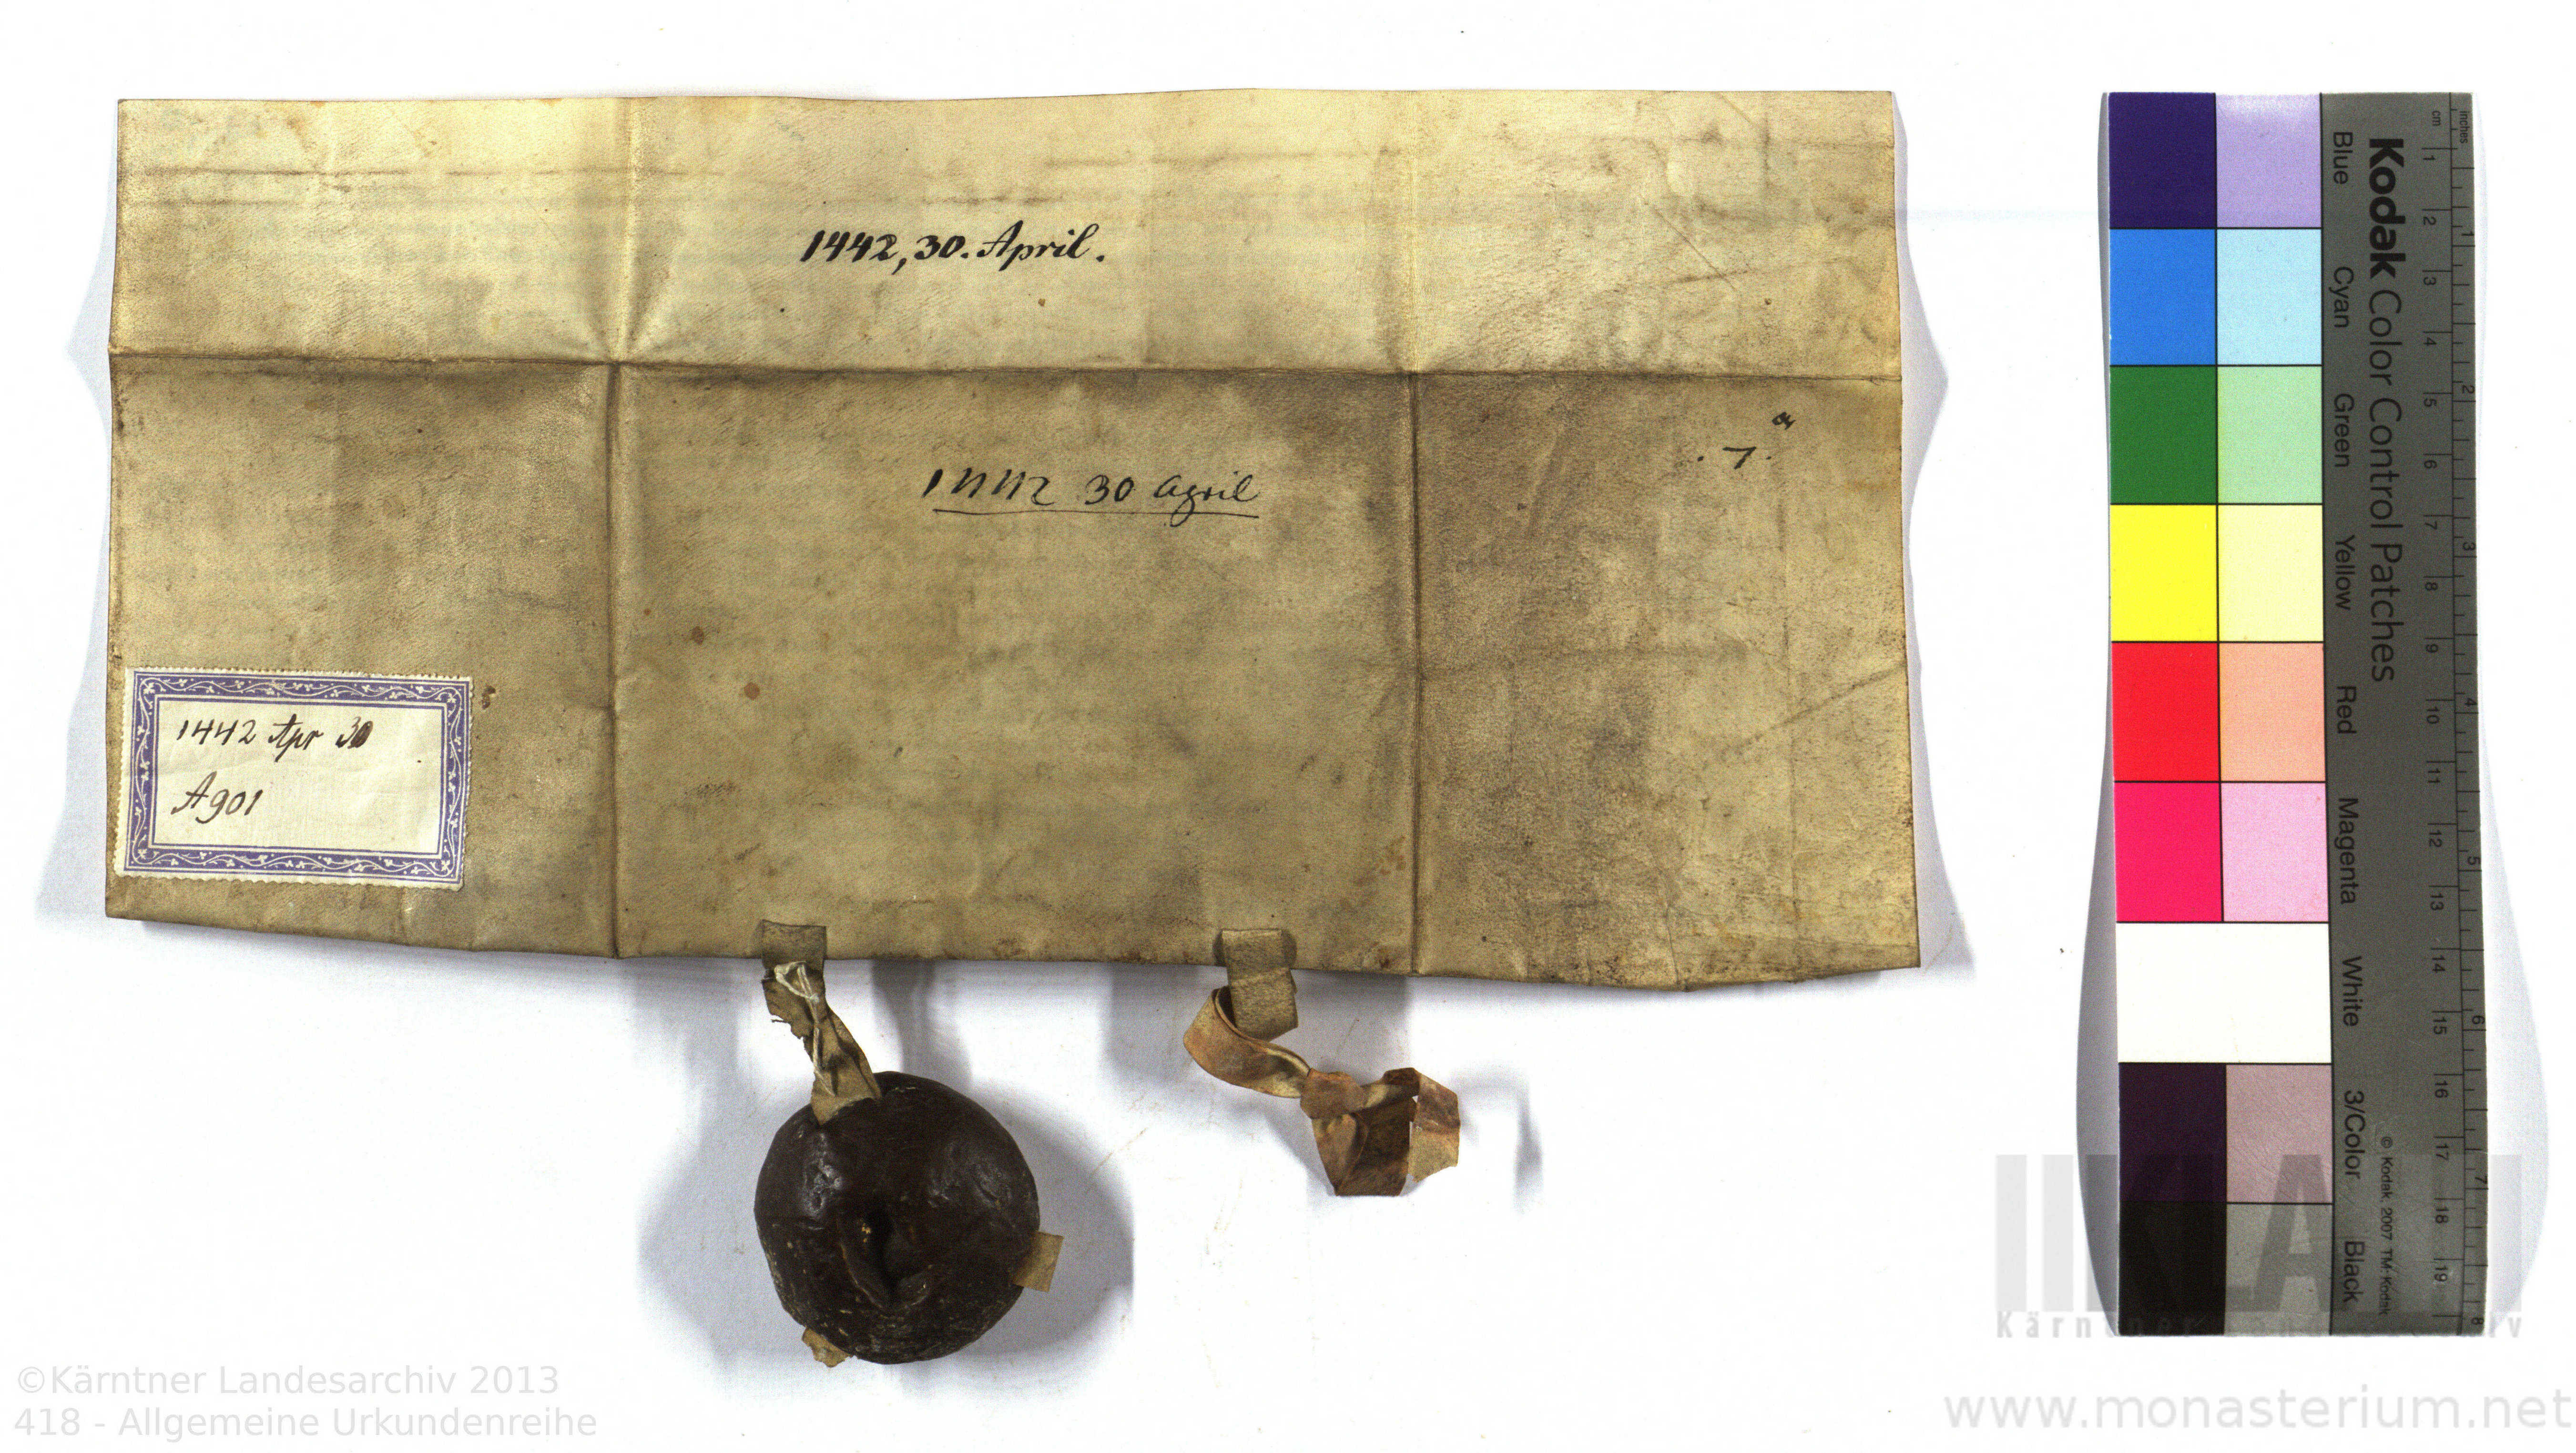 1442, 30. April.
a
. 7 .
1442 30 April
1442 Apr 30
A 901
Kodak Color Control Patches
Blue Cyan Green Yellow Red Magenta White 3/Color Black
© Kodak, 2007 TM: Kodak
cm 1 2 3 4 5 6 7 8 9 10 11 12 13 14 15 16 17 18 19
inches 1 2 3 4 5 6 7 8
KLA
Kärntner Landesarchiv
©Kärntner Landesarchiv 2013
418 - Allgemeine Urkundenreihe
www.monasterium.net